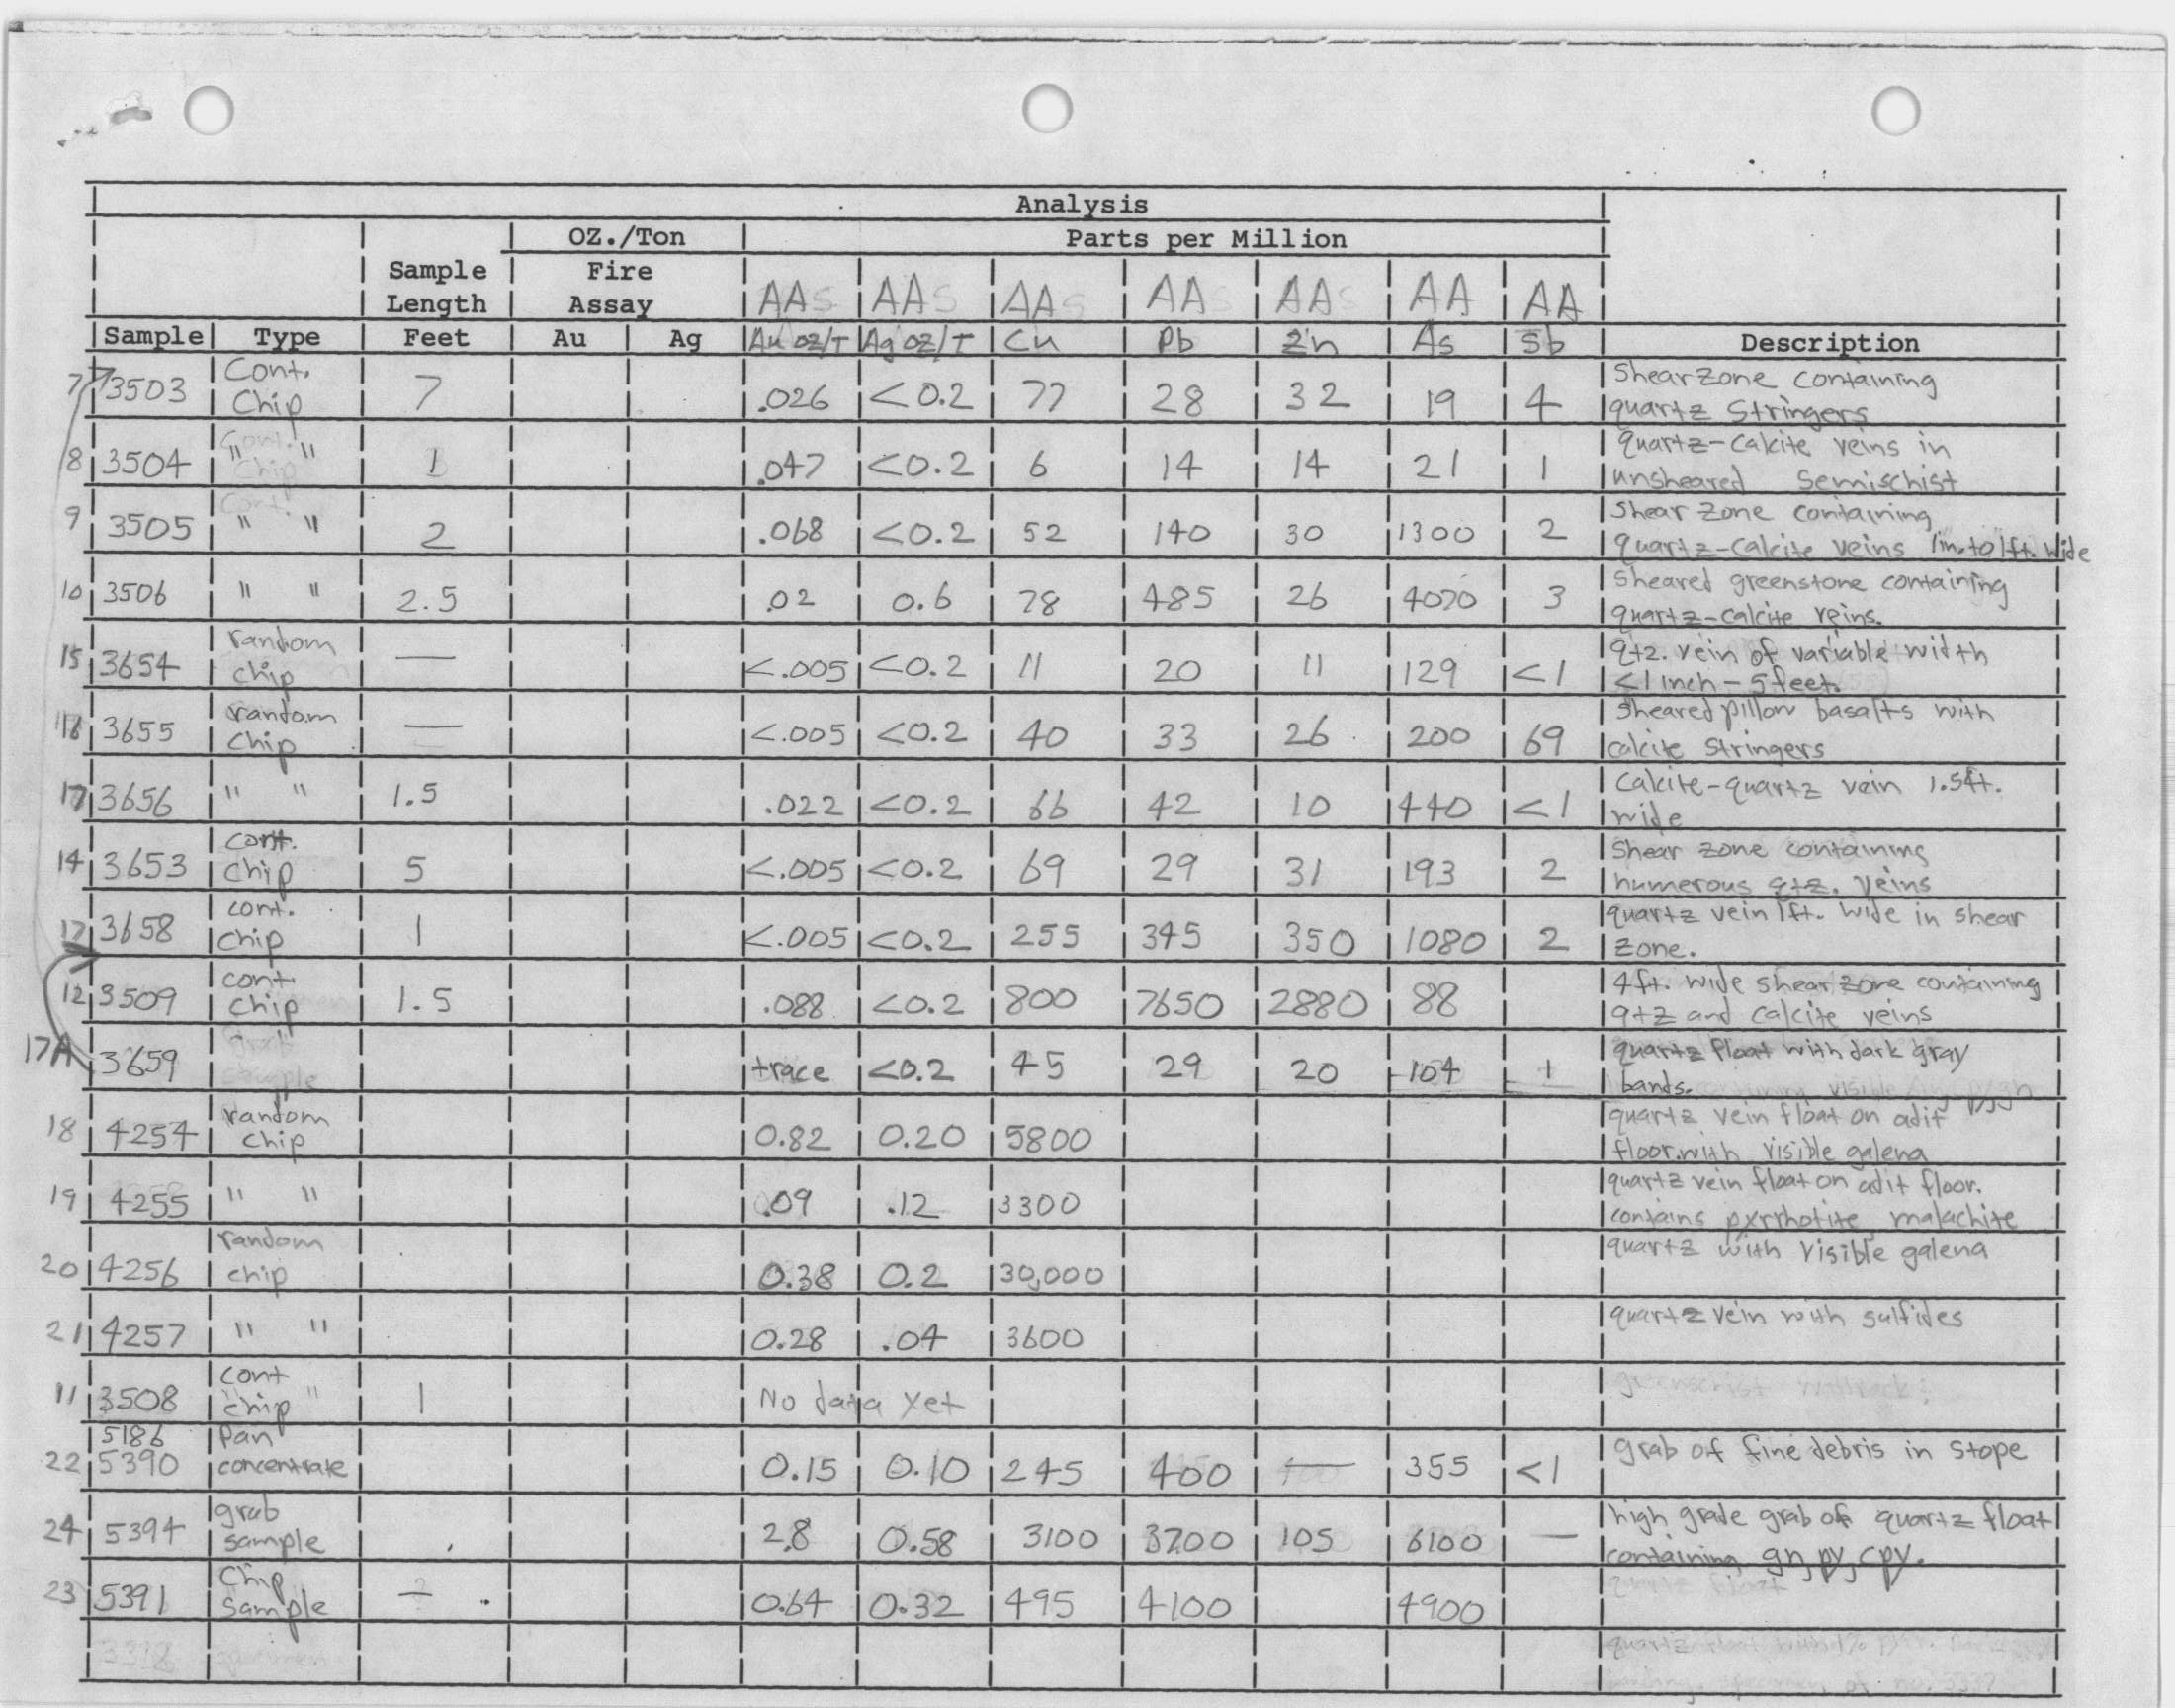 Analysis
OZ./Ton Parts per Million
Sample Fire
Length Assay AAS AAS AAS AAS AAS AA AA
Sample Type Feet Au Ag Au oz/T Ag oz/T Cu Pb Zn As Sb Description
Cont. Shear zone containing
7 3503 Chip 7 .026 <0.2 77 28 32 19 4 quartz Stringers
quartz-calcite veins in
8 3504 " " 1 .047 <0.2 6 14 14 21 1 unsheared Semischist
Shear zone containing
9 3505 " " 2 .068 <0.2 52 140 30 1300 2 quartz-calcite veins 1in. to 1ft. wide
Sheared greenstone containing
10 3506 " " 2.5 .02 0.6 78 485 26 4070 3 quartz-calcite veins.
random qtz. vein of variable width
15 3654 chip — <.005 <0.2 11 20 11 129 <1 <1 inch - 5 feet.
random Sheared pillow basalts with
16 3655 chip — <.005 <0.2 40 33 26 200 69 calcite Stringers
Calcite-quartz vein 1.5ft.
17 3656 " " 1.5 .022 <0.2 66 42 10 440 <1 wide
cont. Shear zone containing
14 3653 chip 5 <.005 <0.2 69 29 31 193 2 numerous qtz. veins
cont. quartz vein 1ft. wide in shear
17 3658 chip 1 <.005 <0.2 255 345 350 1080 2 zone.
cont. 4ft. wide shear zone containing
12 3509 chip 1.5 .088 <0.2 800 7650 2880 88 qtz and calcite veins
quartz float with dark gray
17A 3659 trace <0.2 45 29 20 104 1 bands.
random quartz vein float on adit
18 4254 chip 0.82 0.20 5800 floor with visible galena
quartz vein float on adit floor.
19 4255 " " .09 .12 3300 contains pyrrhotite, malachite
random quartz with visible galena
20 4256 chip 0.38 0.2 30,000
quartz vein with sulfides
21 4257 " " 0.28 .04 3600
cont
11 3508 chip " 1 No data yet
5186 Pan grab of fine debris in stope
22 5390 concentrate 0.15 0.10 245 400 — 355 <1
grab high grade grab of quartz float
24 5394 sample 2.8 0.58 3100 3200 105 6100 — containing gn, py, cpy.
Chip quartz float
23 5391 Sample — 0.64 0.32 495 4100 4900
3318 specimen